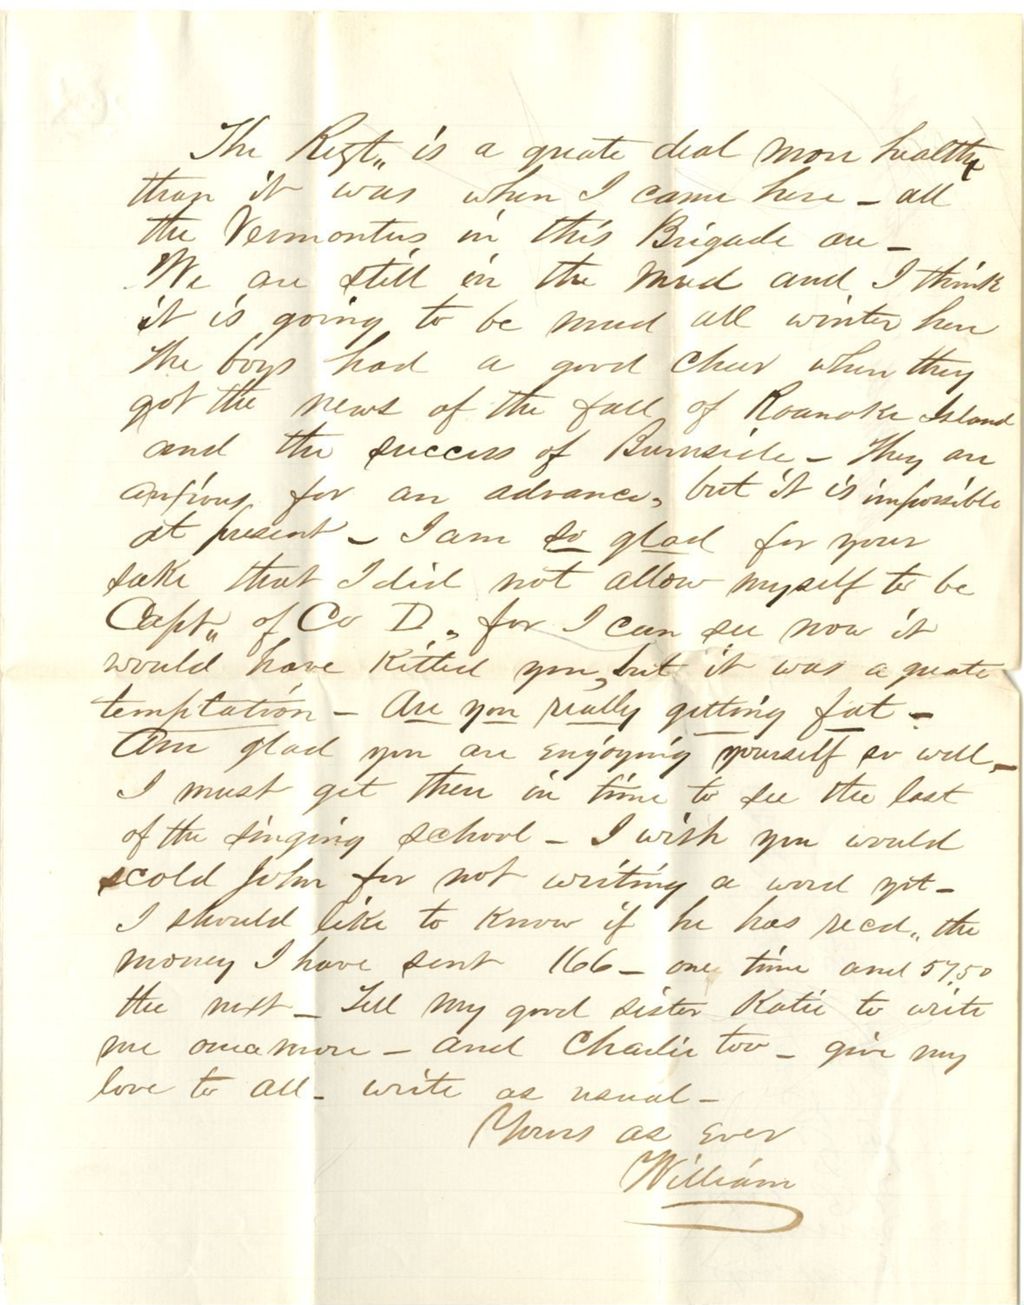 The Regt,, is a greate deal more healthy
than it was when I came here - all
the Vermonters in this Brigade are -
We are still in the Mud and I think
it is going to be mud all winter here
The boys had a good cheer when they
got the news of the fall of Roanoke Island
and the success of Burnside - They are
anxious for an advance, but it is impossible
at present - I am so glad for your
sake that I did not allow myself to be
Capt,, of Co D,, for I can see now it
would have Killed you, but it was a greate
temptation - Are you really getting fat -
Am glad you are Enjoying yourself so well -
I must get there in time to see the last
of the singing school - I wish you would
scold John for not writing a word yet -
I should like to Know if he has recd,, the
money I have sent 166 - one time and 57.50
the next - Tell my good sister Katie to write
me once more - and Charlie too - give my
love to all - write as usual -
Yours as Ever
William